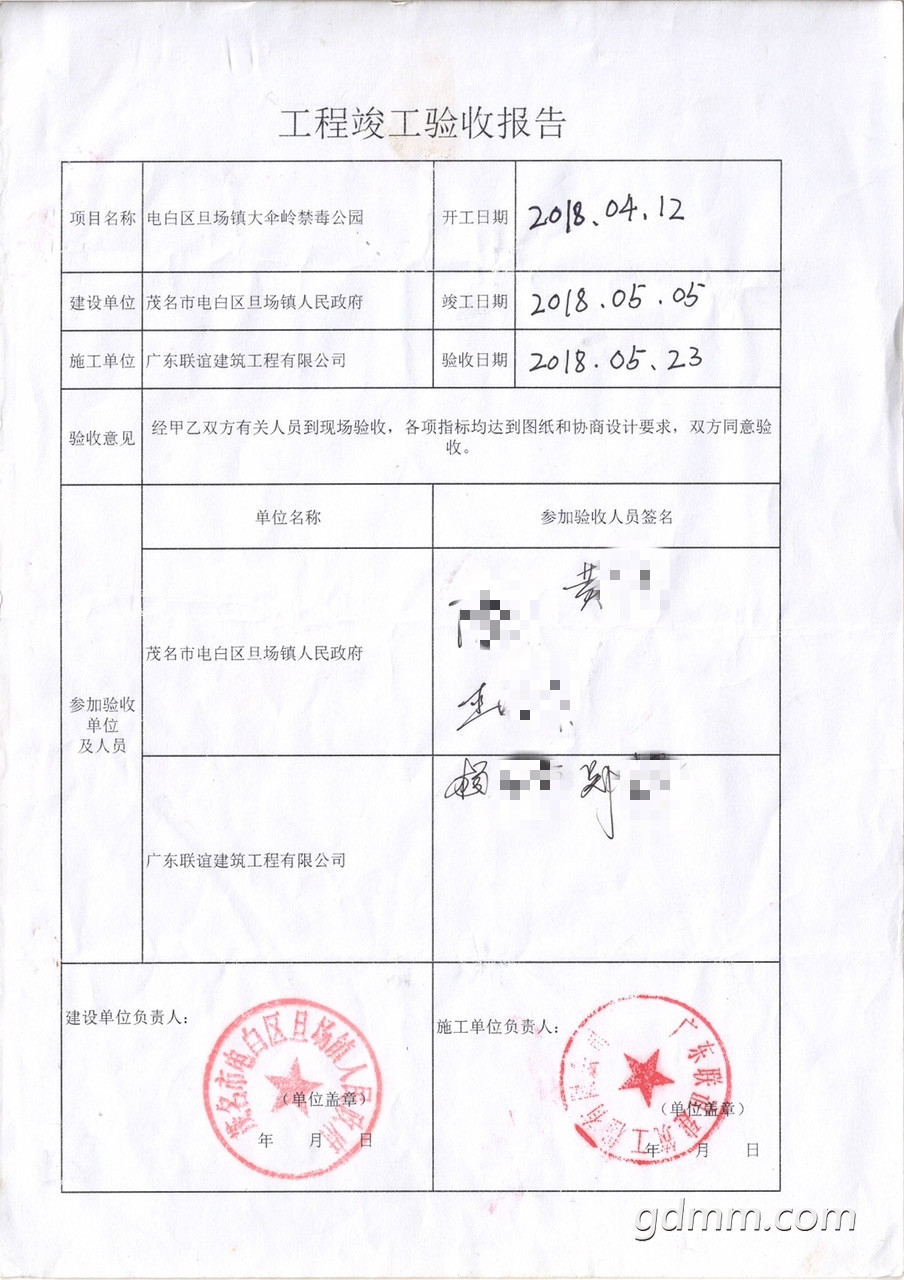 工程竣工验收报告
项目名称 电白区旦场镇大伞岭禁毒公园 开工日期 2018.04.12
建设单位 茂名市电白区旦场镇人民政府 竣工日期 2018.05.05
施工单位 广东联谊建筑工程有限公司 验收日期 2018.05.23
验收意见 经甲乙双方有关人员到现场验收，各项指标均达到图纸和协商设计要求，双方同意验
收。
单位名称 参加验收人员签名
参加验收
单位
及人员
茂名市电白区旦场镇人民政府
黄
陈
杨 郑
广东联谊建筑工程有限公司
建设单位负责人：
茂名市电白区旦场镇人民政府
（单位盖章）
年 月 日
施工单位负责人：
广东联谊建筑工程有限公司
（单位盖章）
年 月 日
gdmm.com